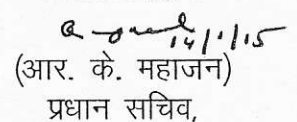 14/1/15
(आर. के. महाजन)
प्रधान सचिव,